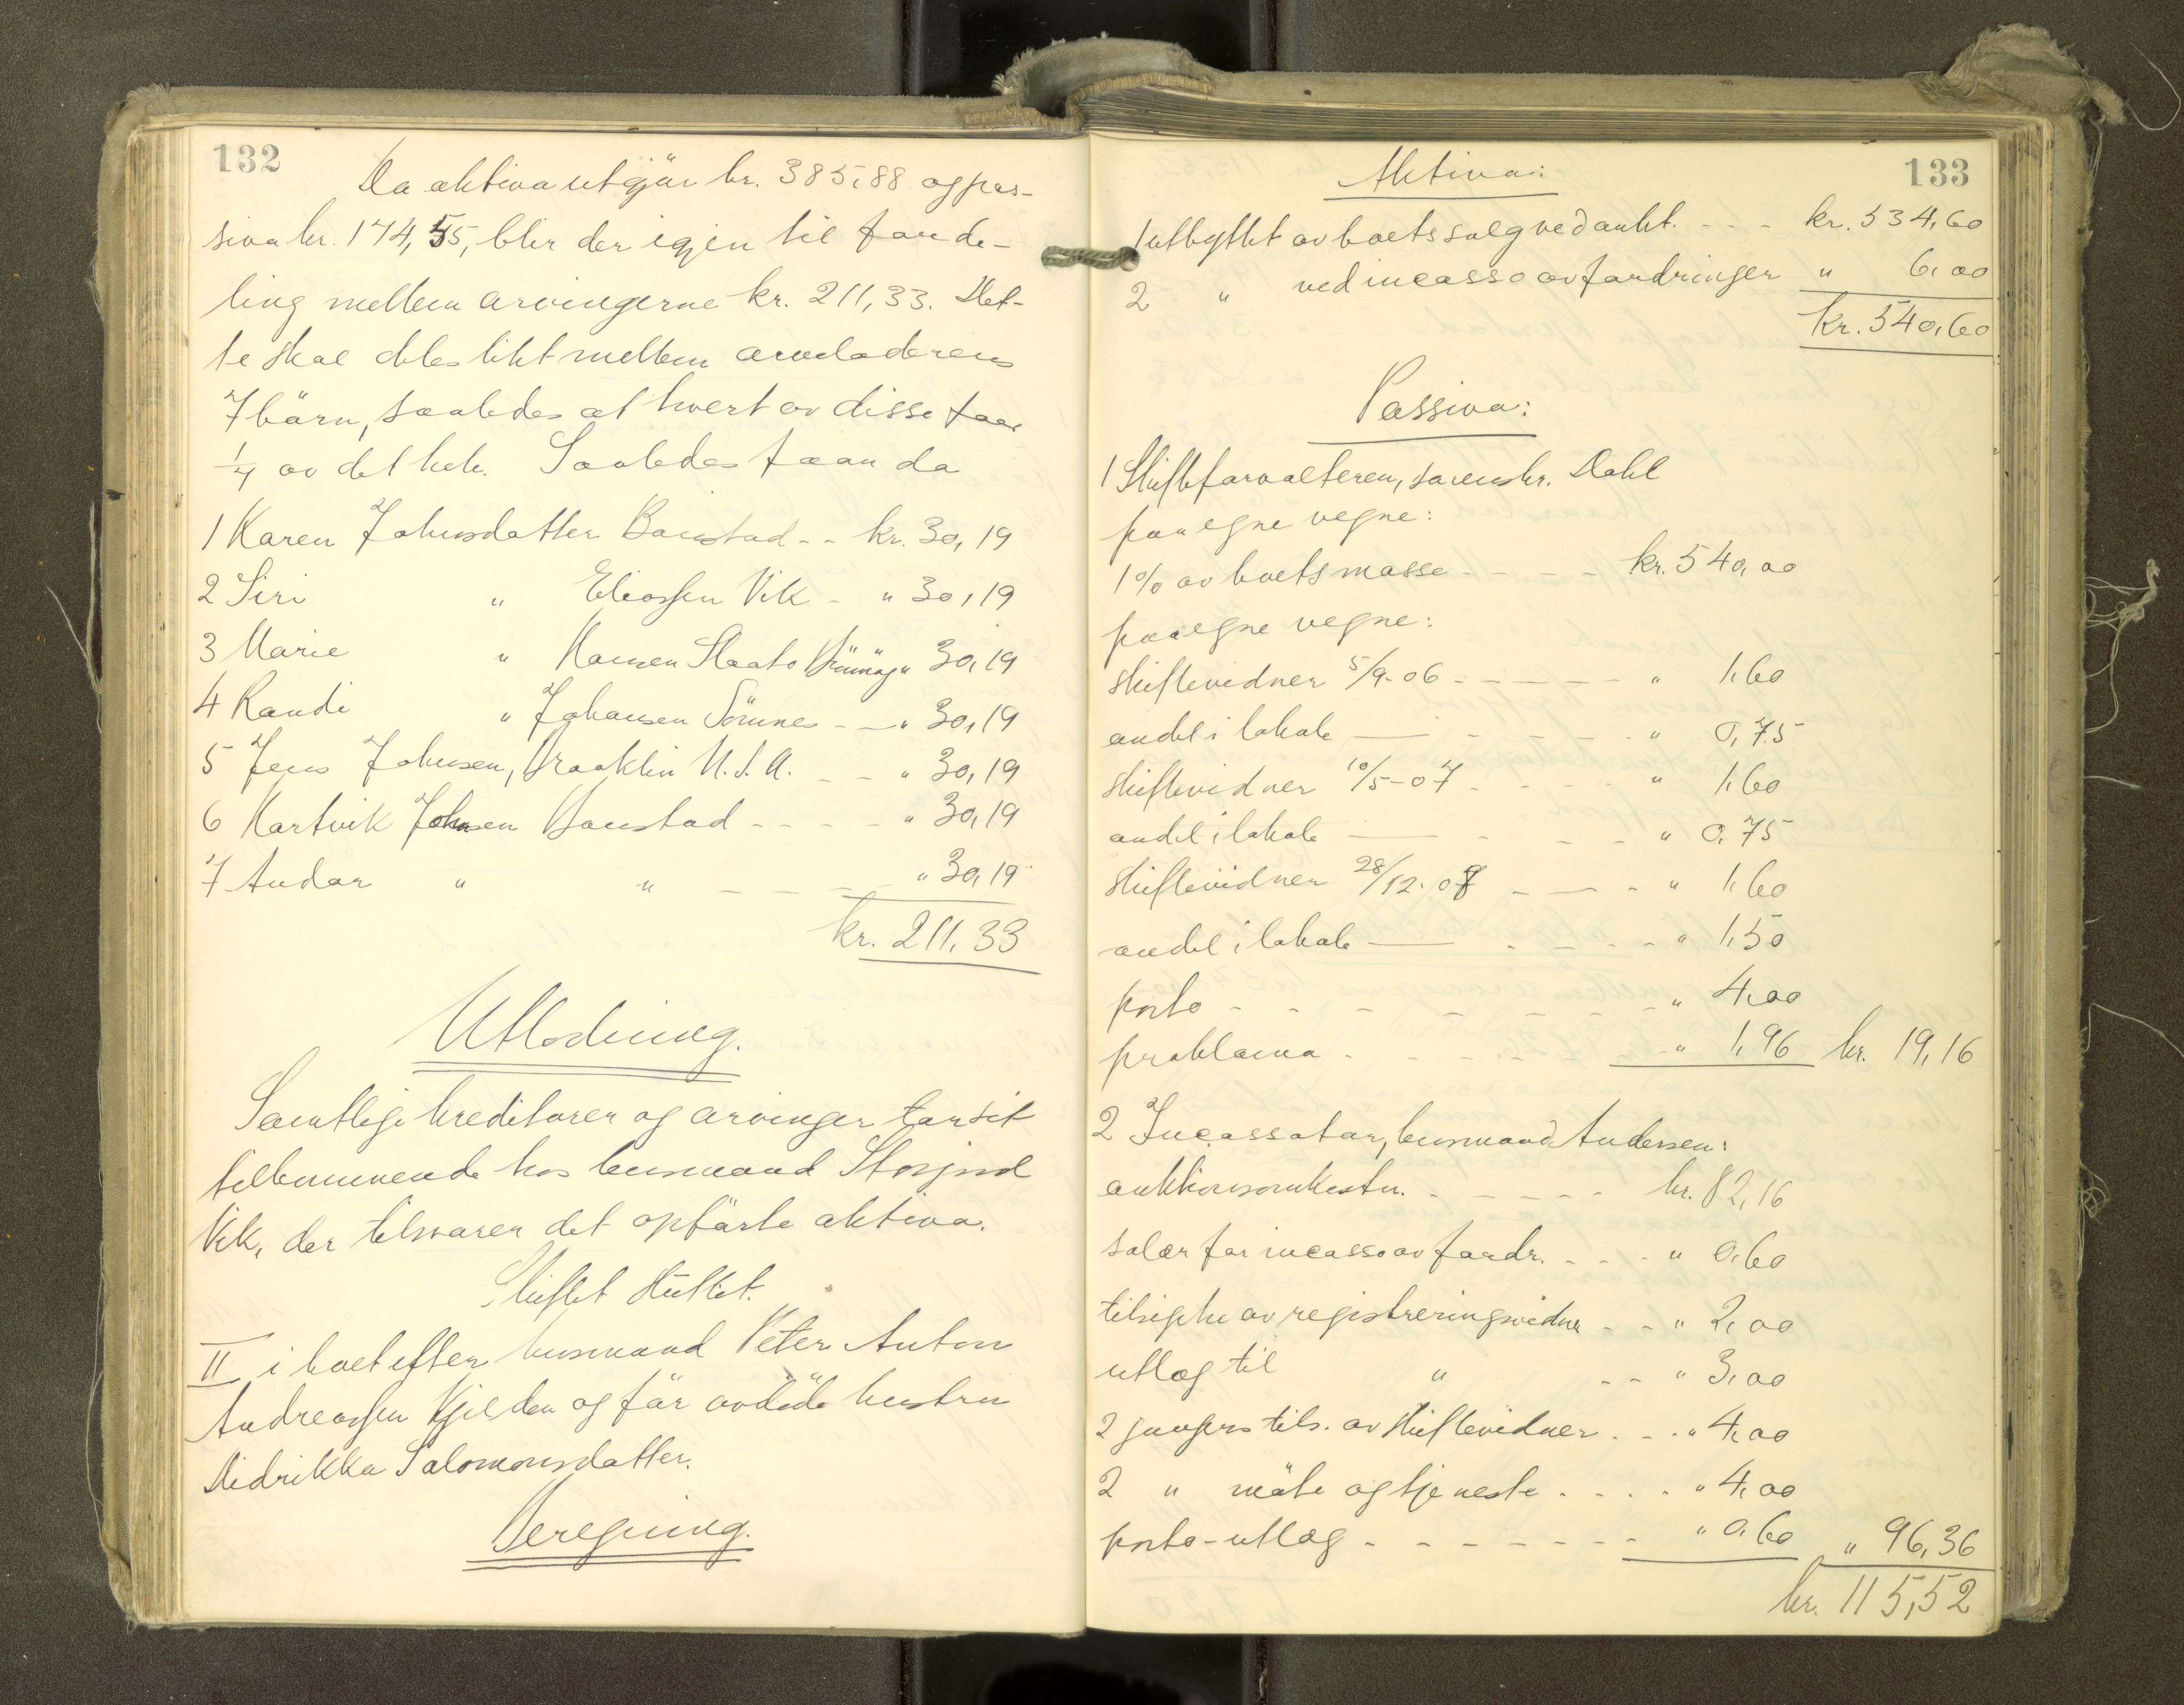 132
Da aktiva utgjør kr. 385,88 og pas-
siva kr. 174,55, blir der igjen til forde-
ling mellem arvingerne kr. 211,33. Det-
te skal deles likt mellem arveladerens
7 børn, saaledes at hvert av disse faar
1/7 av det hele. Saaledes faar da
1 Karen Johnsdatter Baustad -- kr. 30,19
2 Siri " Eliassen Vik - " 30,19
3 Marie " Hansen Slaato Brönnög " 30,19
4 Randi " Johansen Sömnes - - " 30,19
5 Jens Johnsen, Brooklin U.S.A. - - " 30,19
6 Hartvik Johnsen Baustad - - - - " 30,19
7 Andor " " - - - - " 30,19
kr. 211,33
Utlodning.
Samtlige kreditorer og arvinger faar sit
tilkommende hos lensmand Storjord
Vik, der tilsvarer det opførte aktiva.
Skiftet sluttet.
II i boet efter husmand Peter Anton
Andreassen Kjelden og før avdøde hustru
Didrikka Salomonsdatter.
Beregning.
133
Aktiva:
1 utbyttet av boets salg ved aukt. - - - kr. 534,60
2 " ved incasso av fordringer " 6,00
kr. 540,60
Passiva:
1 Skifteforvalteren, sorenskr. Dahl
paa egne vegne:
1% av boets masse - - - - kr. 540,00
paa egne vegne:
skiftevidner 5/9-06 - - - - - " 1,60
andel i lokale — - - - - " 0,75
skiftevidner 10/5-07 - - - - " 1,60
andel i lokale — - - - " 0,75
skiftevidner 28/12-07 - - - " 1,60
andel i lokale — - - - - " 1,50
porto - - - - - - - " 4,00
proklama - - - - - " 1,96 kr. 19,16
2 Incassator, lensmand Andersen:
auktionsomkostn. - - - - - kr. 82,16
salær for incasso av fordr. - - - " 0,60
tilsigelse av registreringsvidner - - " 2,00
utlæg til " - - " 3,00
2 gangers tils. av skiftevidner - - " 4,00
2 " møte og tjeneste - - - - " 4,00
porto-utlæg - - - - - - - " 0,60 " 96,36
kr. 115,52